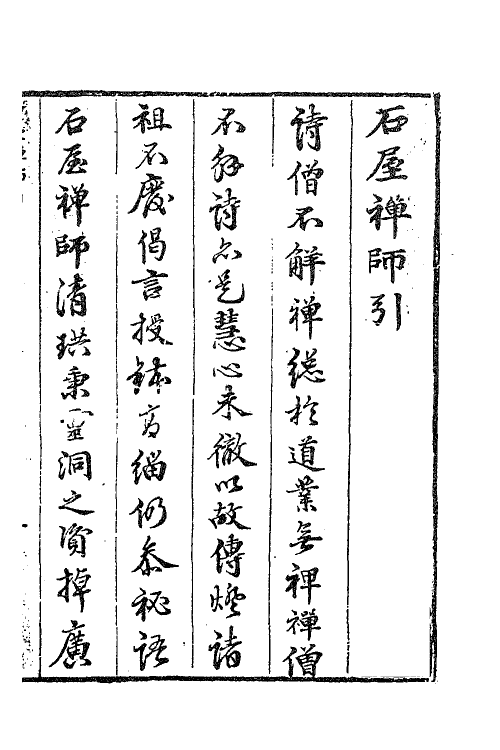 石屋禪師引
詩僧不解禪總於道業無裨禪僧
不解詩亦是慧心未徹以故傳燈諸
祖不廢偈言授鉢高緇仍參秘語
石屋禪師清珙秉靈洞之資掉廣